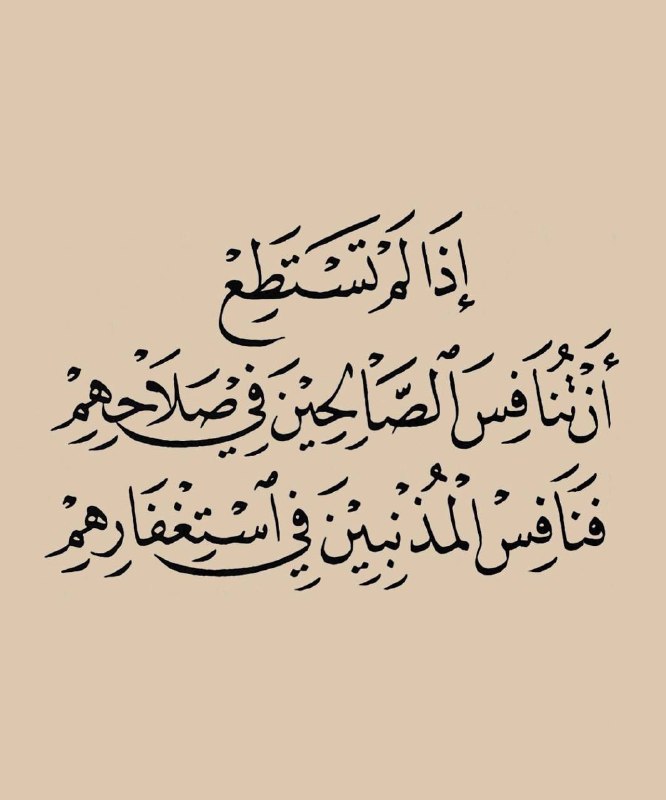 إِذَا لَمْ تَسْتَطِعْ
أَنْ تُنَافِسَ ٱلصَّالِحِيْنَ فِي صَلَاحِهِمْ
فَنَافِسْ الْمُذْنِبِيْنَ فِي ٱسْتِغْفَارِهِمْ